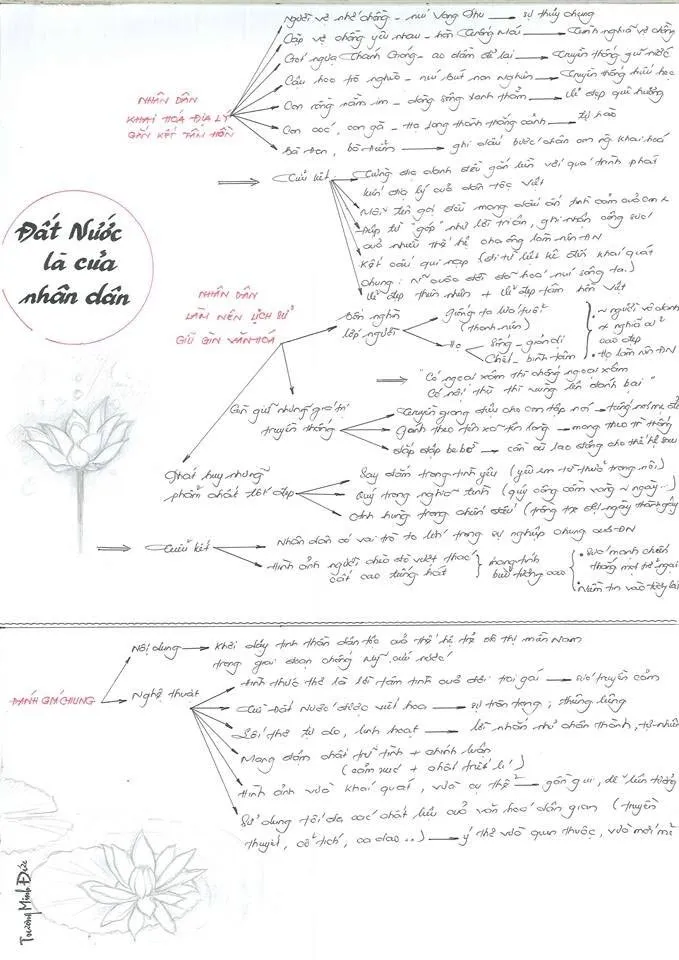 Người vợ nhớ chồng - núi Vọng Phu → sự thủy chung
Cặp vợ chồng yêu nhau - hòn Trống Mái → tình nghĩa vợ chồng
Gót ngựa Thánh Gióng - ao đầm để lại → truyền thống giữ nước
Cậu học trò nghèo - núi bút non nghiên → truyền thống hiếu học
Con rồng nằm im - dòng sông xanh thẳm → vẻ đẹp quê hương
Con cóc, con gà - Hạ Long thành thắng cảnh → tự hào
Bà Đen, bà Điểm → ghi dấu bước chân ông khai hoá
NHÂN DÂN
KHAI HOÁ ĐỊA LÝ
GẮN KẾT TÂM HỒN
⇒ Tiểu kết
Từng địa danh đều gắn liền với quá trình phát
kiến địa lý của dân tộc Việt
Mỗi tên gọi đều mang dấu ấn tình cảm của
Điệp từ "góp" như lời tri ân, ghi nhận công sức
của nhiều thế hệ cha ông làm nên ĐN
Kết cấu qui nạp (đi từ liệt kê đến khái quát
chung: cuộc đời đã hoá núi sông ta)
Vẻ đẹp thiên nhiên + vẻ đẹp tâm hồn Việt
Đất Nước
là của
nhân dân
NHÂN DÂN
LÀM NÊN LỊCH SỬ
GIỮ GÌN VĂN HOÁ
Bốn nghìn
lớp người
giống ta lứa tuổi
(thanh niên)
Họ
Sống - giản dị
Chết - bình tâm
• ~ người vô danh
+ nghĩa cử
cao đẹp
• Họ làm nên ĐN
⇒ "Có ngoại xâm thì chống ngoại xâm
Có nội thù thì vùng lên đánh bại"
Gìn giữ những giá trị
truyền thống
Truyền giọng điệu cho con tập nói → tiếng nói mẹ đẻ
Gánh theo tên xã tên làng → mang theo
Đắp đập be bờ → cần cù lao động cho thế hệ sau
Phát huy những
phẩm chất tốt đẹp
Say đắm trong tình yêu (yêu em từ thuở trong nôi)
Quý trọng nghĩa tình (quý công cầm vàng ~ ngày...)
Anh hùng trong chiến đấu (trồng tre đợi ngày thành gậy)
⇒ Tiểu kết
Nhân dân có vai trò to lớn trong sự nghiệp chung của ĐN
Hình ảnh người chèo đò vượt thác
cất cao tiếng hát
mang tính
biểu tượng cao
• Sức mạnh chiến
thắng mọi trở ngại
• Niềm tin vào tương lai
ĐÁNH GIÁ CHUNG
Nội dung → Khơi dậy tinh thần dân tộc của thế hệ trẻ đô thị miền Nam
trong giai đoạn chống Mỹ cứu nước
Nghệ thuật
Hình thức thơ là lời tâm tình của đôi trai gái → sức truyền cảm
Chữ Đất Nước được viết hoa → sự trân trọng, thiêng liêng
Lối thơ tự do, linh hoạt → lời nhắn nhủ chân thành, tự nhiên
Mang đậm chất trữ tình + chính luận
(cảm xúc + chất triết lí)
Hình ảnh vừa khái quát, vừa cụ thể → gần gũi, dễ liên tưởng
Sử dụng tối đa các chất liệu của văn hoá dân gian (truyền
thuyết, cổ tích, ca dao...) → ý thơ vừa quen thuộc, vừa mới mẻ
Trương Minh Đức